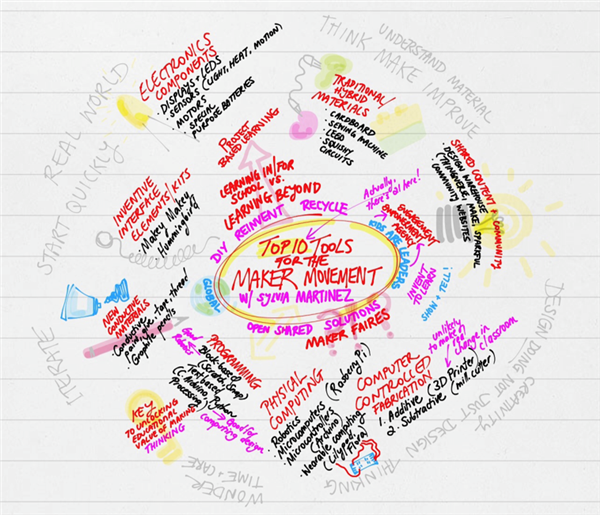 TOP 10 TOOLS
FOR THE
MAKER MOVEMENT
W/ SYLVIA MARTINEZ
Actually,
there's 9 here!
DIY REINVENT RECYCLE
GLOBAL
OPEN SHARED SOLUTIONS
MAKER FAIRES
KIDS ARE LEADERS
ENGAGEMENT
EMPOWERMENT
AGENCY
INTENT
TO LEARN
SHOW + TELL!
PROJECT
BASED LEARNING
LEARNING IN/FOR
SCHOOL VS.
LEARNING BEYOND
ELECTRONICS
COMPONENTS
• DISPLAYS + LEDS
• SENSORS (LIGHT, HEAT, MOTION)
• MOTORS
• SPECIAL
PURPOSE BATTERIES
TRADITIONAL/
HYBRID
MATERIALS
• CARDBOARD
• SEWING MACHINE
• LEGO
• SQUISHY
CIRCUITS
SHARED CONTENT + COMMUNITY
• DESIGN WAREHOUSE
(THINGIVERSE, MAKE, SPARKFUN)
• COMMUNITY
WEBSITES
unlikely
to make a
real
change in
classroom
COMPUTER
CONTROLLED
FABRICATION
1. Additive (3D Printer)
2. Subtractive (mill, cutter)
PHYSICAL
COMPUTING
Robotics
• Microcomputers (Raspberry Pi)
• Microcontrollers
(Arduino)
• Wearable computing
(Lilypad
Flora)
PROGRAMMING
Block-based
(Scratch, Snap)
Text based
(C, Arduino, Python)
Processing
→ Good for
computing design
KEY
TO UNLOCKING
EDUCATIONAL
VALUE OF MAKING
THINKING
NEW
CONDUCTIVE
MATERIALS
Conductive
paint • tape • thread
• Graphite pencils
INVENTIVE
INTERFACE
ELEMENTS/KITS
Makey Makey
Hummingbird
THINK MAKE IMPROVE
UNDERSTAND MATERIAL
REAL WORLD
START QUICKLY
ITERATE
WONDER
TIME + CARE
DESIGN DOING NOT JUST DESIGN THINKING
CREATIVITY